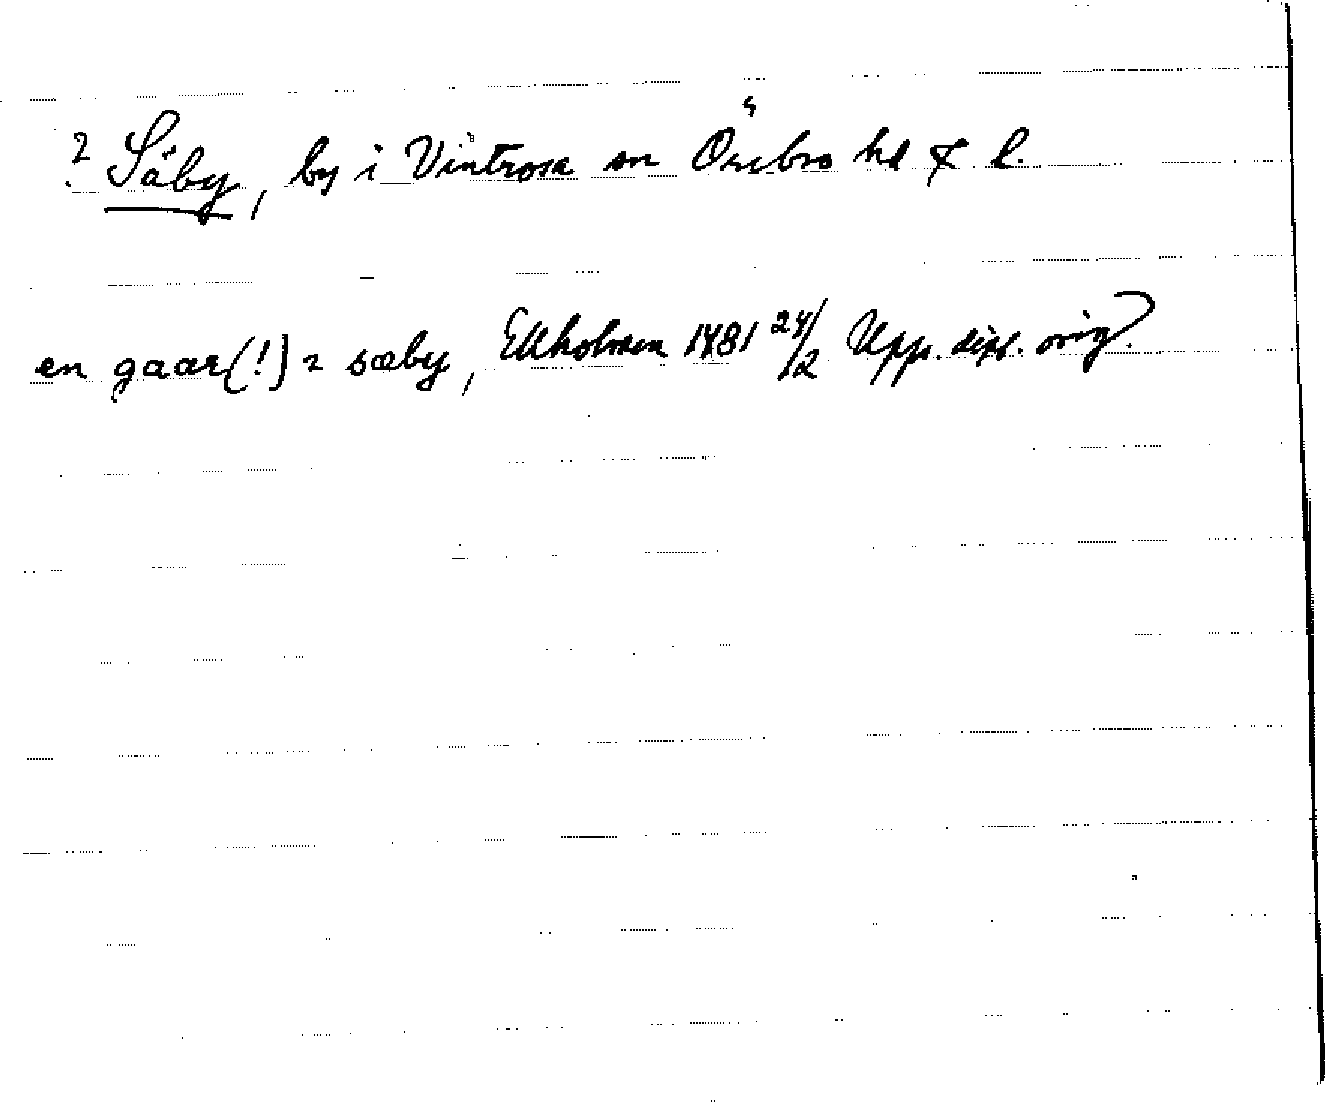 ? Säby, by i Vintrosa sn Örebro hd & l.
en gaar(!) i sæby, Ekholmen 1481 24/2 Upp. dipl. orig?